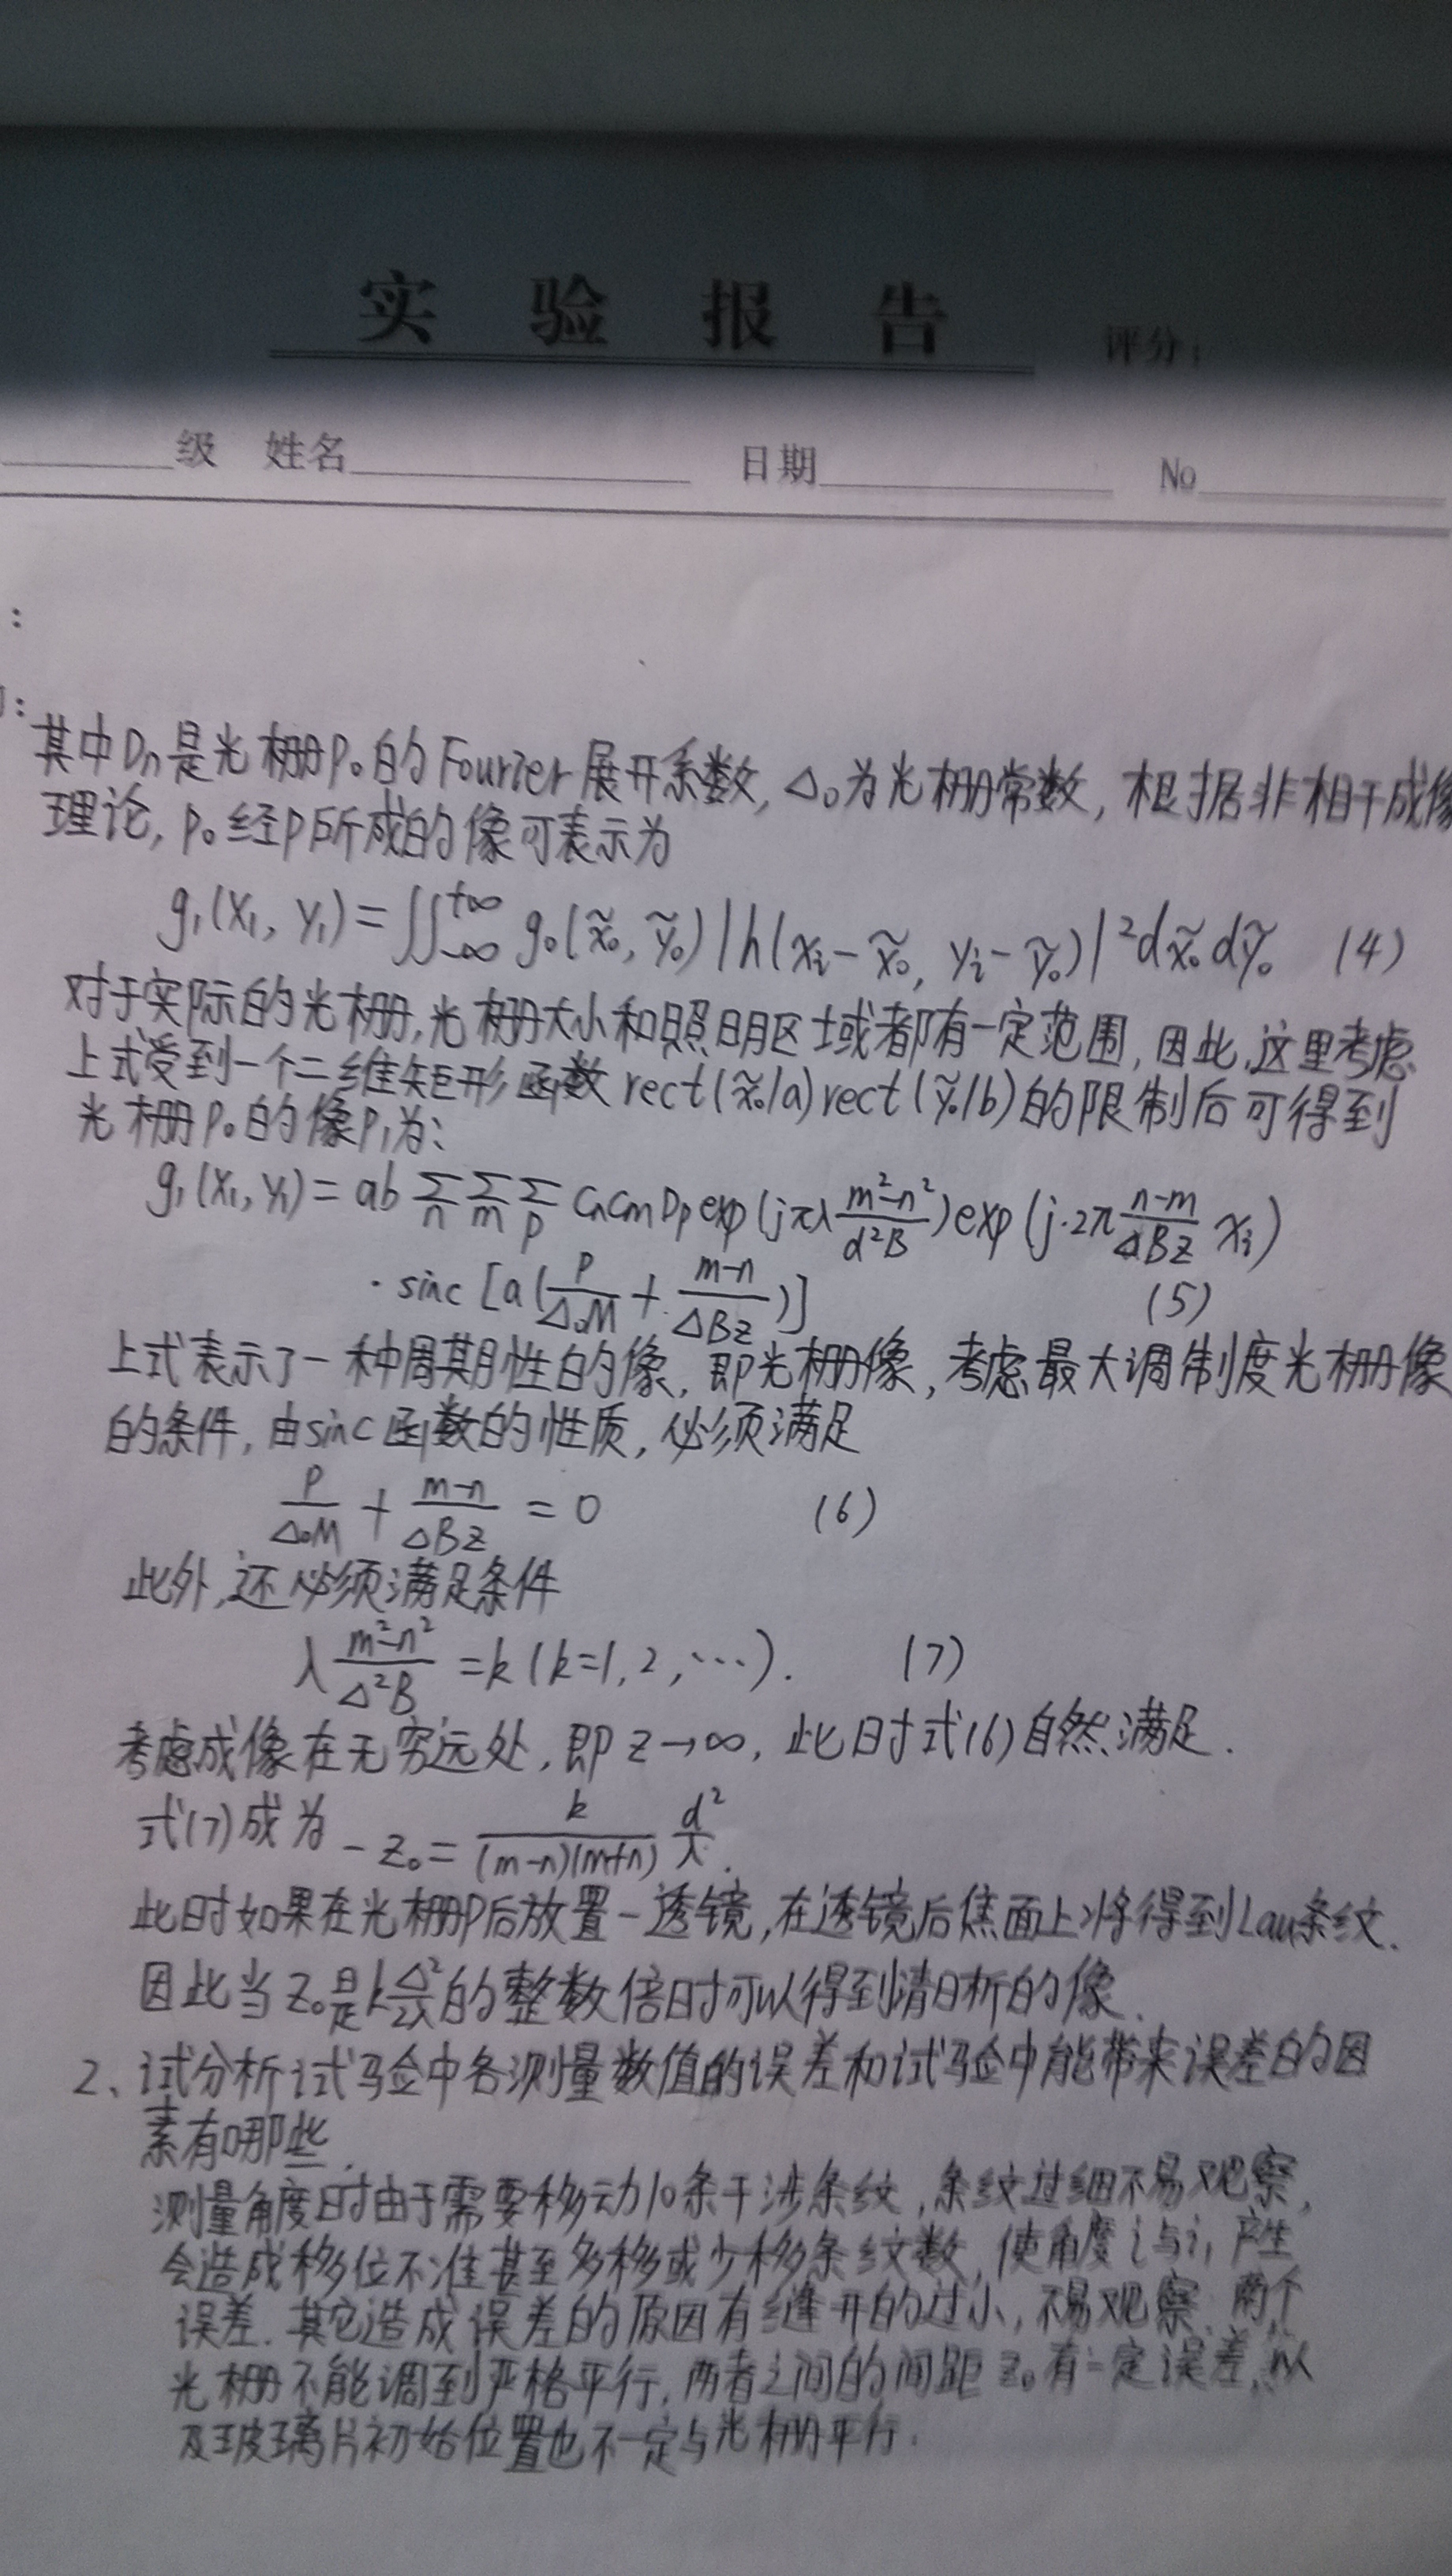 实验报告
评分:
级 姓名 日期 No
:
:
其中Dn是光栅P₀的Fourier展开系数, Δ₀为光栅常数, 根据非相干成像
理论, P₀经P所成的像可表示为
g₁(x₁, y₁) = ∬₋∞^{+∞} g₀(x̃₀, ỹ₀)|h(xᵢ-x̃₀, yᵢ-ỹ₀)|²dx̃₀dỹ₀ (4)
对于实际的光栅, 光栅大小和照明区域或者都有一定范围, 因此, 这里考虑
上式受到一个二维矩形函数rect(x̃₀/a)rect(ỹ₀/b)的限制后可得到
光栅P₀的像P₁为:
g₁(x₁, yᵢ) = ab Σ_n Σ_m Σ_p CnCmDp exp(jπλ (m²-n²)/(d²B)) exp(j·2π (n-m)/(ΔBz) xᵢ)
· sinc[a(p/(Δ₀M) + (m-n)/(ΔBz))] (5)
上式表示了一种周期性的像, 即光栅像, 考虑最大调制度光栅像
的条件, 由sinc函数的性质, 必须满足
p/(Δ₀M) + (m-n)/(ΔBz) = 0 (6)
此外, 还必须满足条件
λ (m²-n²)/(Δ²B) = k (k=1, 2, …). (7)
考虑成像在无穷远处, 即z→∞, 此时式(6)自然满足.
式(7)成为 -z₀ = k/((m-n)(m+n)) d²/λ.
此时如果在光栅P后放置一透镜, 在透镜后焦面上将得到Lau条纹.
因此当z₀是k Δ²/2λ的整数倍时可以得到清晰的像.
2、试分析试验中各测量数值的误差和试验中能带来误差的因
素有哪些.
测量角度时由于需要移动10条干涉条纹, 条纹过细不易观察,
会造成移位不准甚至多移或少移条纹数, 使角度i与i₁产生
误差. 其它造成误差的原因有缝开的过小, 不易观察, 两个
光栅不能调到严格平行, 两者之间的间距z₀有一定误差, 以
及玻璃片初始位置也不一定与光栅平行.